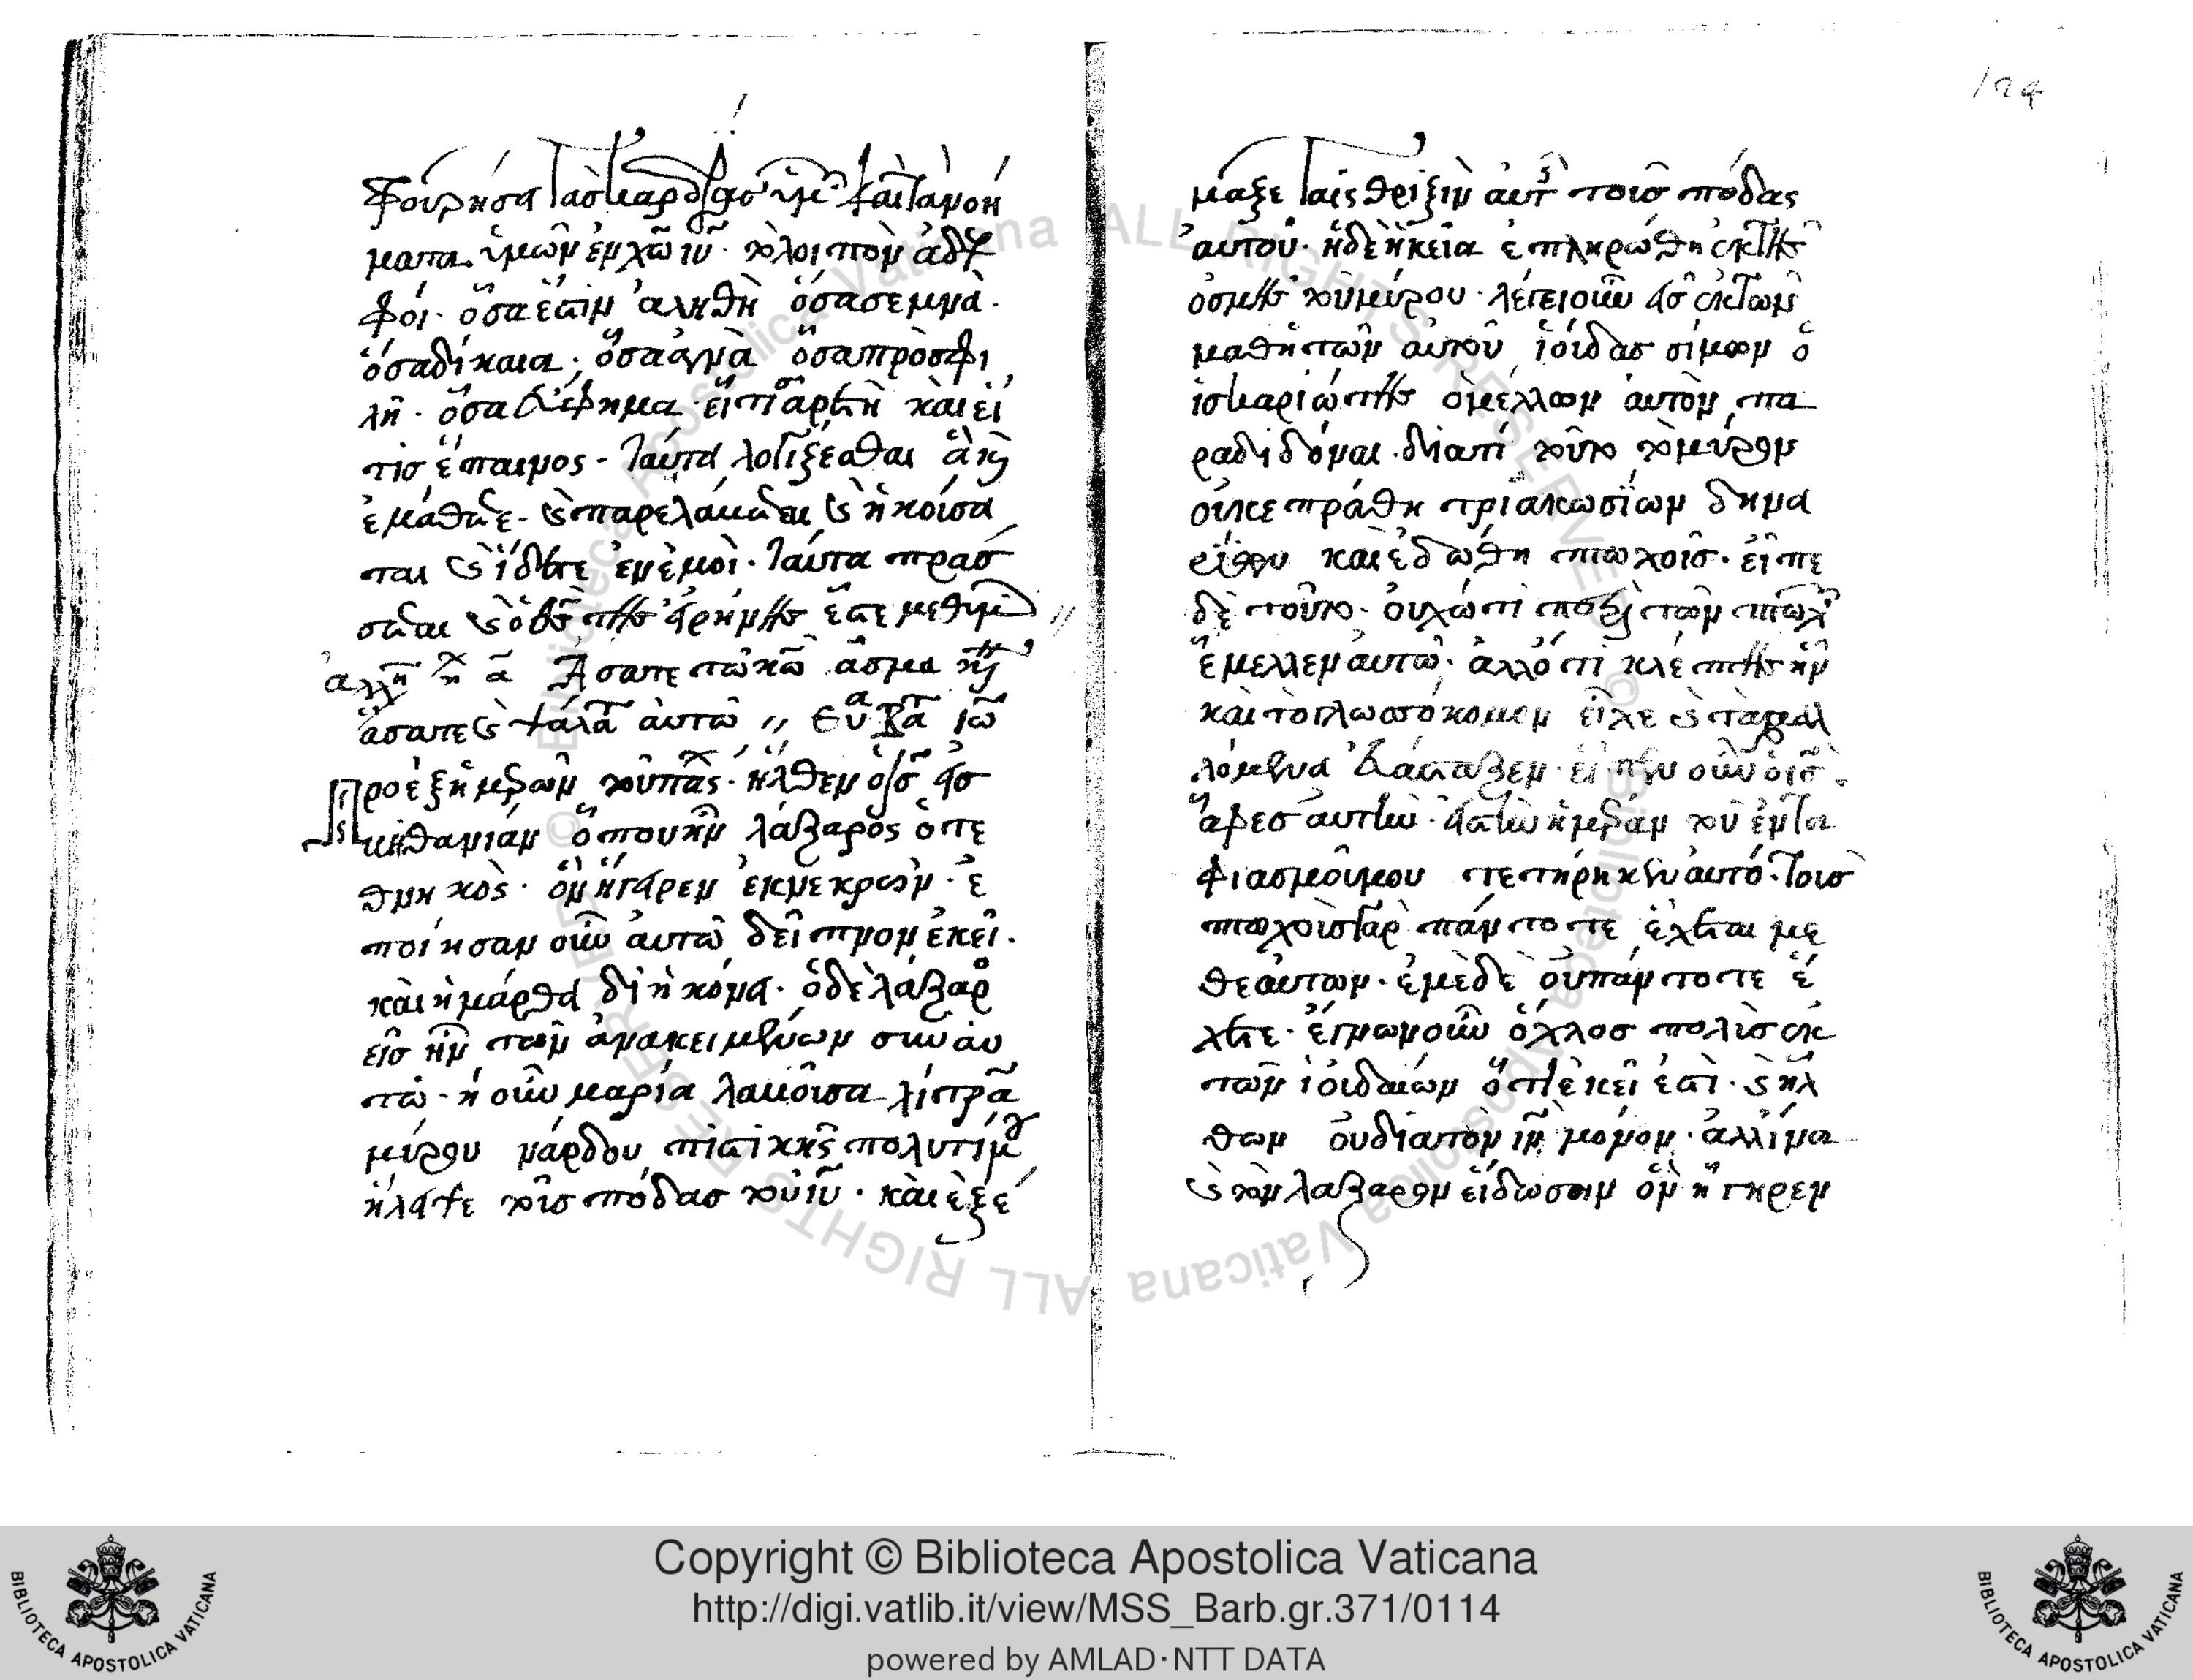 φουρήσα τὰς καρδίας ὑμ καὶ τὰ νοή
ματα ὑμῶν ἐν χῶ ιυ · τὸ λοιπὸν ἀδελ
φοί · ὅσα ἐστὶν ἀληθῆ ὅσα σεμνὰ ·
ὅσα δίκαια · ὅσα ἁγνὰ ὅσα πρὸσφι
λῆ · ὅσα εὔφημα εἴ τις ἀρετὴ καὶ εἴ
τισ ἔπαινος - ταῦτα λογίζεσθαι ἃ κὶ
ἐμάθετε · κὶ παρελάβεται κὶ ἠκούσα
ται κὶ ἴδετε ἐν ἐμοὶ · ταῦτα πρασ
σεται κὶ ὁ θς τῆς εἰρήνης ἔσται μεθ υμ
ἀλλη ἦχ α Ασατε τῶ κῶ ἄσμα
ἄσατε κὶ ψάλατ αὐτῶ // Ευα κατ ιω
Προ ἐξ ἡμερῶν τοῦ πάσχ · ἦλθεν ὁ ισ εἰσ
βηθανίαν ὅπου ἦν λάζαρος ὁ τε
θνηκὸς · ὃν ἤγειρεν ἐκ νεκρῶν · ἐ
ποίησαν οὖν αὐτῶ δεῖπνον ἐκεῖ ·
καὶ ἡ μάρθα διηκόνα · ὁ δὲ λάζαρο
εἷσ ἦν τῶν ἀνακειμένων σὺν αυ
τῶ · ἡ οὖν μαρία λαβοῦσα λίτραν
μύρου νάρδου πιστικῆς πολυτίμου
ἤλειψε τοὺσ πόδασ τοῦ ιυ · καὶ ἐξέ
124
μαξε ταῖς θριξὶν αὐτῆς τοὺσ πόδας
αὐτοῦ · ἡ δὲ ἠκεία ἐπληρώθη ἐκ τῆς
ὀσμῆς τοῦ μύρου · λέγει οὖν εἷσ ἐκ τῶν
μαθητῶν αὐτοῦ ἰούδασ σίμων ὁ
ἰσκαριώτης ὁ μέλλων αὐτὸν πα
ραδιδόναι · διατί τοῦτο τὸ μύρον
οὐκ ἐπράθη τριακωσίων δηνα
ρίων καὶ ἐδώθη πτωχοῖσ · εἶπε
δὲ τοῦτο · οὐχ ὥτι περὶ τῶν πτωχ
ἔμελλεν αὐτῶ · ἀλλ ὅτι κλέπτης ἦν
καὶ τὸ γλωσσόκομον εἶχε κὶ τὰ βαλ
λόμενα ἐβάσταζεν · εἶπεν οὖν ὁ ισ ·
ἄφεσ αὐτὴν · εἰσ τὴν ἡμέραν τοῦ ἐντα
φιασμοῦ μου τετήρηκεν αὐτό · Τοὺσ
πτωχοὺσ γὰρ πάντοτε ἔχεται με
θ ἑαυτων · ἐμὲ δὲ οὐ πάντοτε ἔ
χετε · ἔγνων οὖν ὄχλοσ πολὺσ ἐκ
τῶν ἰουδαίων ὅτι ἐκεῖ ἐστὶ · κὶ ἦλ
θων οὐ διὰ τὸν ιν μόνον · ἀλλ ἵνα
κὶ τὸν λάζαρον εἴδωσοιν ὃν ἤγηρεν
Copyright © Biblioteca Apostolica Vaticana
http://digi.vatlib.it/view/MSS_Barb.gr.371/0114
powered by AMLAD·NTT DATA